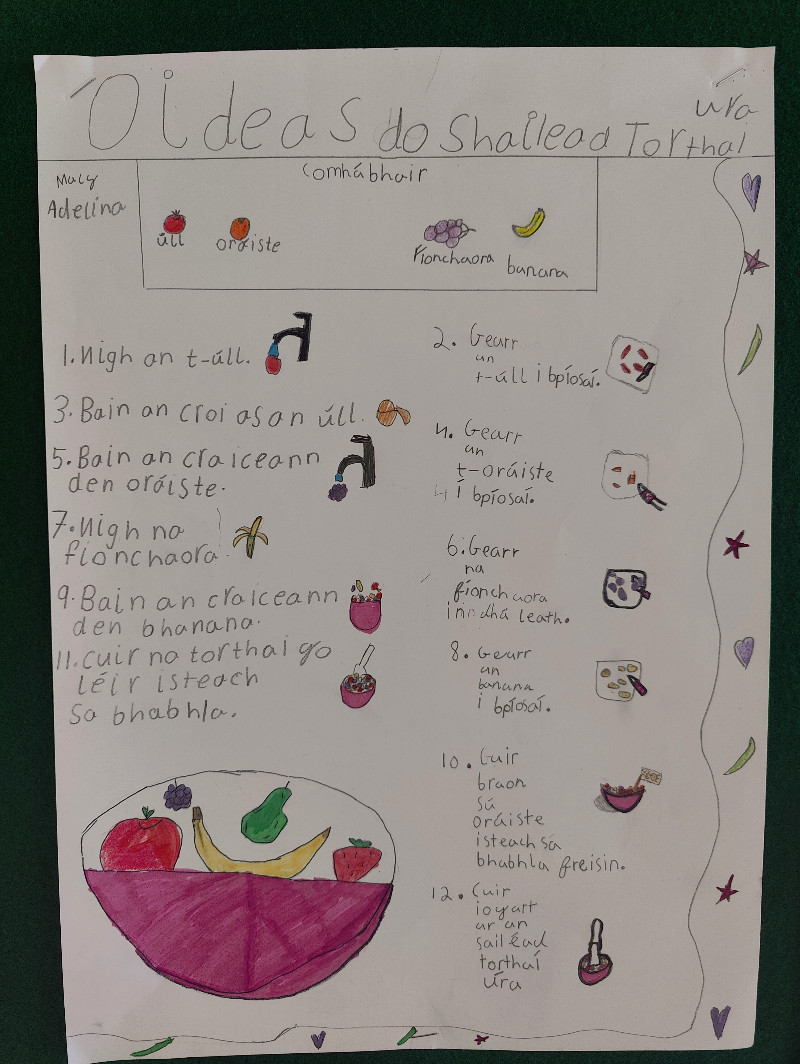 Oideas do Shailead Torthaí
úra
Macy
Adelina
Comhábhair
úll
oráiste
fíonchaora
banana
1. Nigh an t-úll.
2. Gearr
an
t-úll i bpíosaí.
3. Bain an croí as an úll.
4. Gearr
an
t-oráiste
i bpíosaí.
5. Bain an craiceann
den oráiste.
6. Gearr
na
fíonchaora
inn dhá leath.
7. Nigh na
fíonchaora.
8. Gearr
an
banana
i bpíosaí.
9. Bain an craiceann
den bhanana.
10. Cuir
braon
sú
oráiste
isteach sa
bhabhla freisin.
11. Cuir na torthaí go
léir isteach
sa bhabhla.
12. Cuir
iogart
ar an
sailéad
torthaí
úra